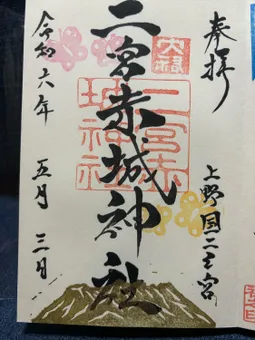 奉拝
上野国二之宮
二宮赤城神社
令和六年 五月 三日
二宮赤
城神社